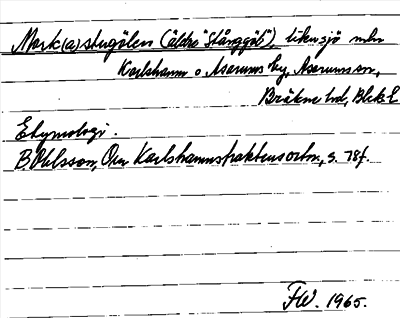 Mark(a)stugölen (äldre "Stånggöl"), liten sjö mln
Karlshamn o Asarums by, Asarums sn,
Bräkne hd, Blek.l.
Etymologi.
B. Ohlsson, Om Karlshamnstraktens ortn., s. 78f.
FW. 1965.